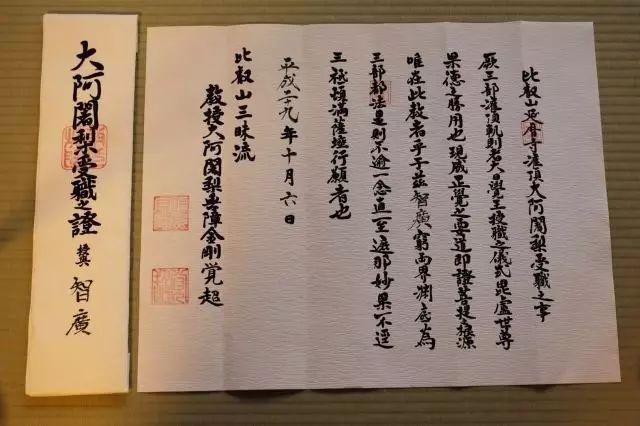 比叡山延暦寺灌頂大阿闍梨受職之事
厥三部灌頂軌則者大日覺王授職之儀式毘盧世尊
果徳之勝用也現成正覺之要道即證菩提根源
唯在此教者乎于茲智廣窮両界渕底為
三部都法是則不逾一念直至遮那妙果不逕
三祇頓満薩埵行願者也
平成廿九年十月六日
比叡山三昧流
教授大阿闍梨障金剛覚超
大阿闍梨受職之證 智廣